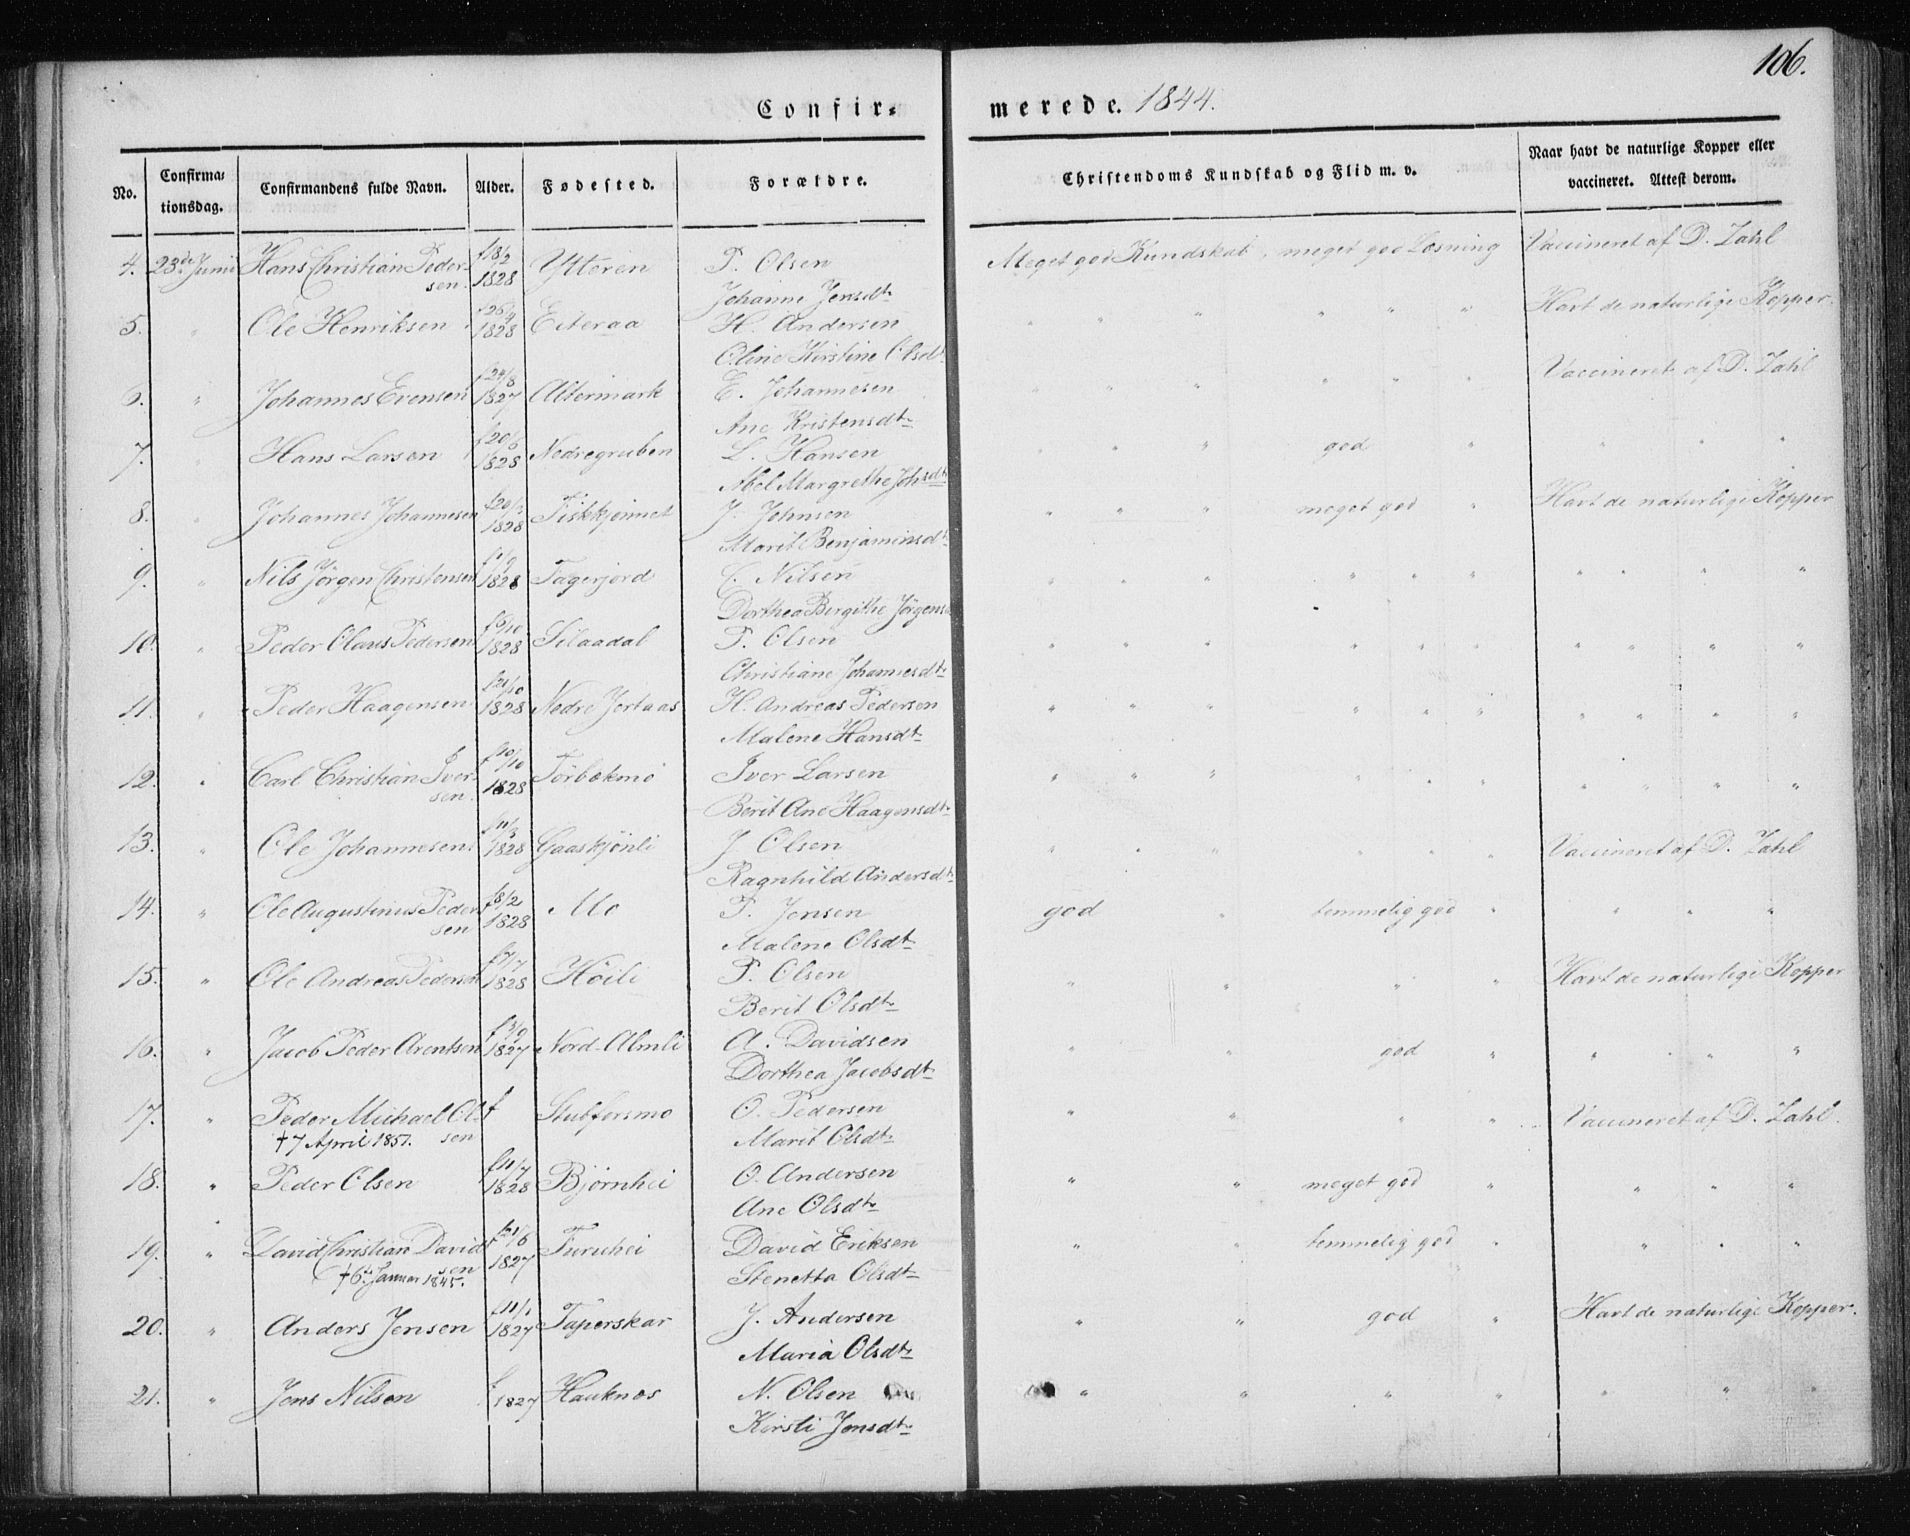 106.
Confir- merede. 1844.
No. Confirma-tionsdag. Confirmandens fulde Navn. Alder. Fødested. Forældre. Christendoms Kundskab og Flid m. v. Naar havt de naturlige Kopper eller vaccineret. Attest derom.
4. 23de Junii Hans Christian Peder- f 18/2 Ytteren P. Olsen Meget god Kundskab, meget god Læsning Vaccineret af D. Zahl
sen. 1828 Johanne Jensdtr
5. " Ole Henriksen 1828 Eiteraa H. Andersen " " " " " " Havt de naturlige Kopper.
Oline Kirstine Olsdtr
6. " Johannes Evensen f 24/8 1827 Altermark E. Johannesen " " " " " " Vaccineret af D. Zahl
Ane Kristensdtr
7. " Hans Larsen f 20/6 1828 Nedregruben L. Hansen " " " god " " " "
Abel Margrethe Johsdtr
8. " Johannes Johannesen 1828 Fiskkjønnet J. Johnsen " " " meget god " Havt de naturlige Kopper
Marit Benjaminsdtr
9. " Nils Jörgen Christensen 1828 Fagerjord C. Nilsen " " " " " " " " " "
Dorthea Birgithe Jörgens
10. " Peder Olaus Pedersen f 6/10 1828 Silaadal P. Olsen " " " " " " " " " "
Christiane Johannesdtr
11. " Peder Haagensen f 21/10 1828 Nedre Jortaas H. Andreas Pedersen " " " " " " " " " "
Malene Hansdtr
12. " Carl Christian Iver- f 10/10 Törbekmo Iver Larsen " " " " " " " " " "
sen. 1828 Berit Ane Haagensdtr
13. " Ole Johannesen f 11/3 1828 Gaaskjönli J Olsen " " " " " " Vaccineret af D. Zahl
Ragnhild Andersdtr
14. " Ole Augustinus Peder- f 8/2 Mo P. Jensen god " temmelig god " " " "
sen 1828 Malene Olsdtr
15. " Ole Andreas Pedersen f 7/7 1828 Höili P. Olsen " " " " Havt de naturlige Kopper
Berit Olsdtr
16. " Jacob Peder Arentsen f 3/9 1827 Nord-Almli A. Davidsen " " god " " " "
Dorthea Jacobsdtr
17. " Peder Michael Ol- f Stubforsmo O. Pedersen " " " " Vaccineret af D. Zahl.
† 7 April 1851. sen Marit Olsdtr
18. " Peder Olsen f 11/7 1828 Bjørnhei O. Andersen " " meget god " " " "
Ane Olsdtr
19. " David Christian David- f 21/6 Furuhei David Eriksen " " temmelig god " " " "
sen 1827 Stenetta Olsdtr
† 6te Januar 1845.
20. " Anders Jensen f 11/1 1827 Taperskar J. Andersen " " god " Havt de naturlige Kopper.
Maria Olsdtr
21. " Jens Nilsen f 1827 Hauknes N. Olsen " " " " " " "
Kirsti Jensdtr